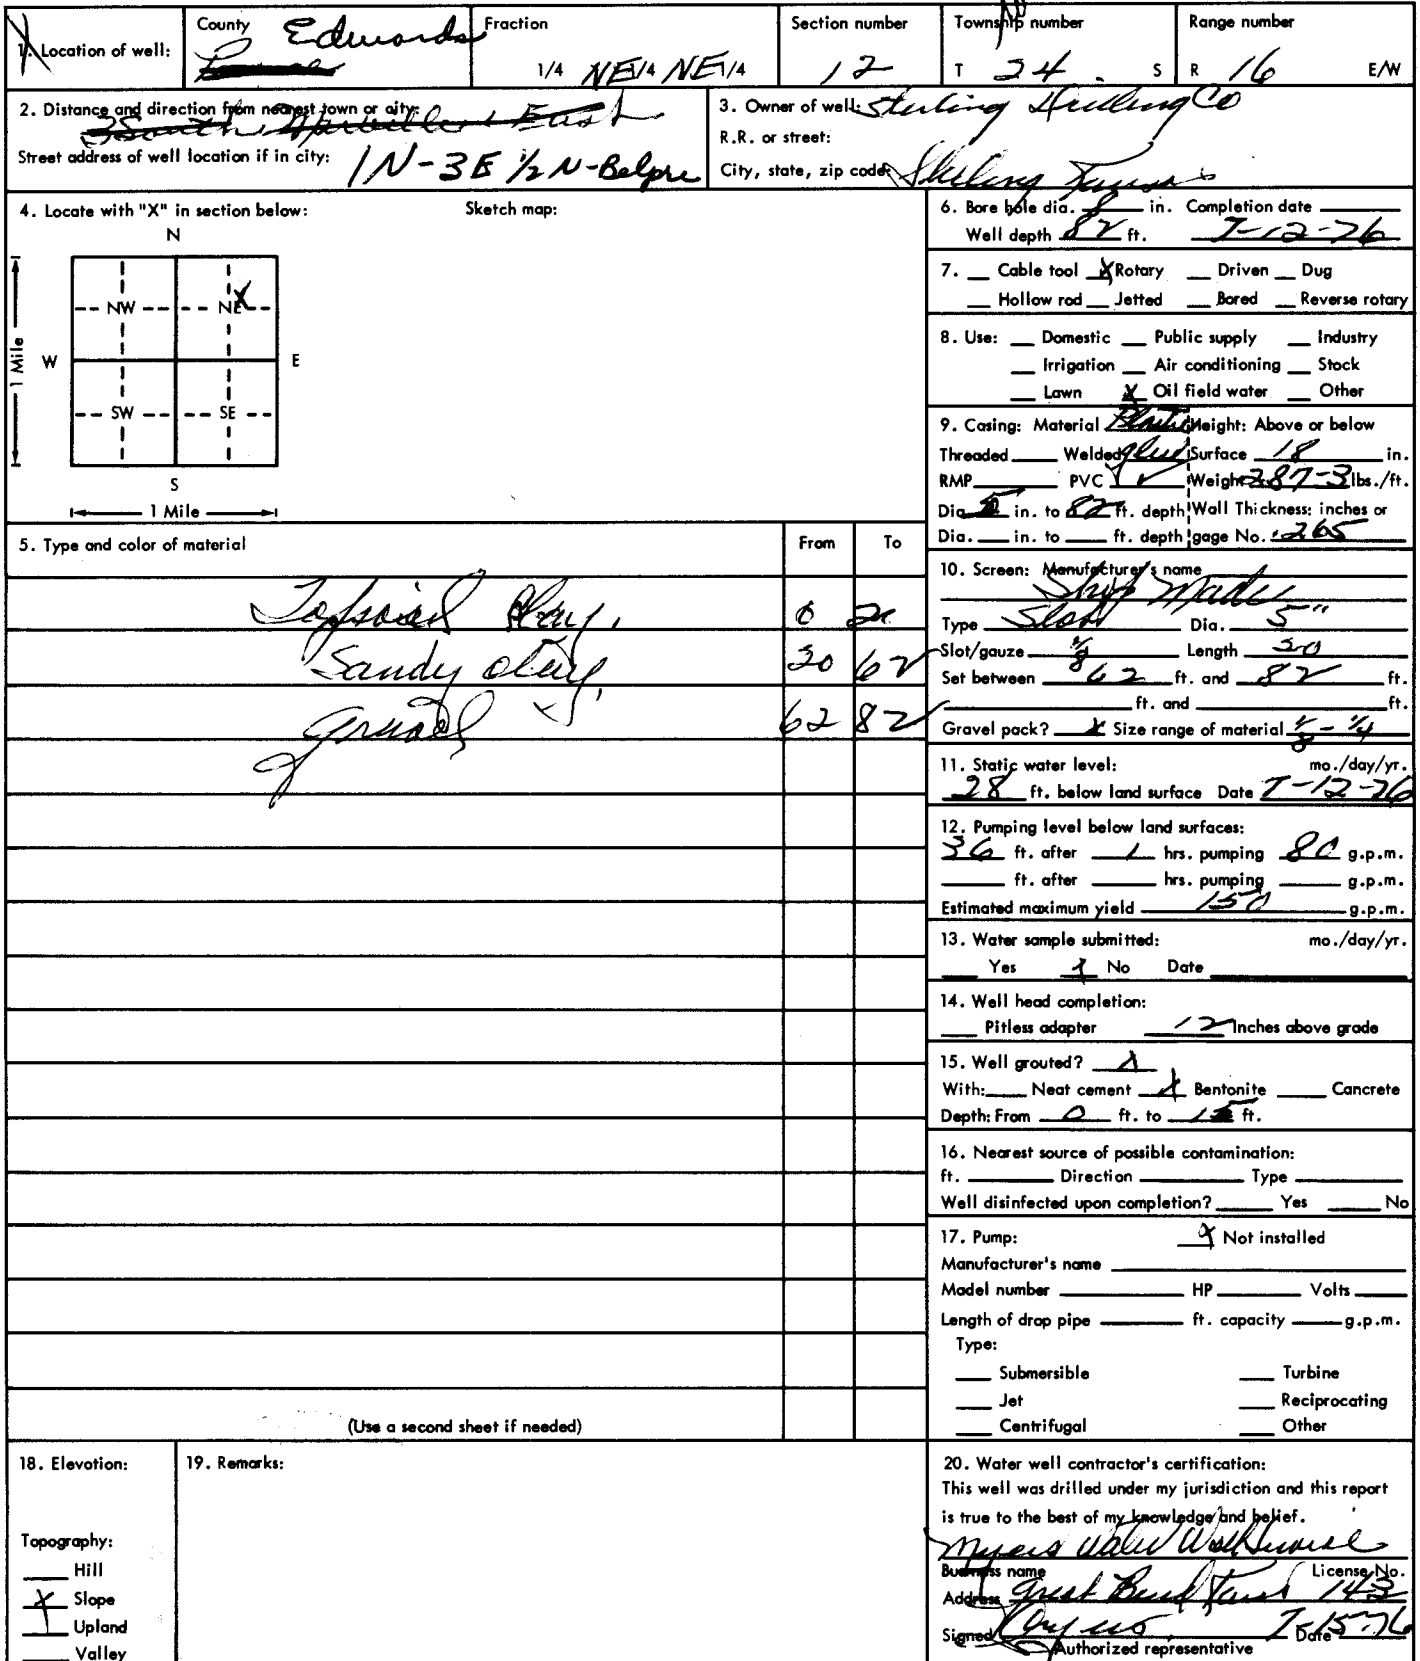 County Edwards Fraction Section number Township number Range number
1. Location of well: 1/4 NE 1/4 NE 1/4 12 T 24 S R 16 E/W
2. Distance and direction from nearest town or city: 3 South East
Street address of well location if in city: 1N-3E ½ N-Belpre
3. Owner of well: Sterling Drilling Co
R.R. or street:
City, state, zip code: Sterling Kansas
4. Locate with "X" in section below: Sketch map:
N
NW NE X
W E
SW SE
S
1 Mile
1 Mile
5. Type and color of material From To
Topsoil Clay, 0 20
Sandy clay, 20 62
gravel 62 82
(Use a second sheet if needed)
6. Bore hole dia. 8 in. Completion date
Well depth 82 ft. 7-12-76
7. Cable tool X Rotary Driven Dug
Hollow rod Jetted Bored Reverse rotary
8. Use: Domestic Public supply Industry
Irrigation Air conditioning Stock
Lawn X Oil field water Other
9. Casing: Material Plastic Height: Above or below
Threaded Welded glue Surface 18 in.
RMP PVC Weight 287-3 lbs./ft.
Dia. 5 in. to 82 ft. depth Wall Thickness: inches or
Dia. in. to ft. depth gage No. .265
10. Screen: Manufacturer's name
Shop Made
Type Slot Dia. 5"
Slot/gauze 1/8 Length 20
Set between 62 ft. and 82 ft.
ft. and ft.
Gravel pack? X Size range of material 1/8 - 1/4
11. Static water level: mo./day/yr.
28 ft. below land surface Date 7-12-76
12. Pumping level below land surfaces:
36 ft. after 1 hrs. pumping 80 g.p.m.
ft. after hrs. pumping g.p.m.
Estimated maximum yield 150 g.p.m.
13. Water sample submitted: mo./day/yr.
Yes X No Date
14. Well head completion:
Pitless adapter 12 Inches above grade
15. Well grouted? X
With: Neat cement X Bentonite Concrete
Depth: From 0 ft. to ft.
16. Nearest source of possible contamination:
ft. Direction Type
Well disinfected upon completion? Yes No
17. Pump: X Not installed
Manufacturer's name
Model number HP Volts
Length of drop pipe ft. capacity g.p.m.
Type:
Submersible Turbine
Jet Reciprocating
Centrifugal Other
18. Elevation:
Topography:
Hill
X Slope
Upland
Valley
19. Remarks:
20. Water well contractor's certification:
This well was drilled under my jurisdiction and this report
is true to the best of my knowledge and belief.
Myers Water Well Service
Business name License No.
Address Great Bend Kans 143
Signed Myers Date 7-15-76
Authorized representative